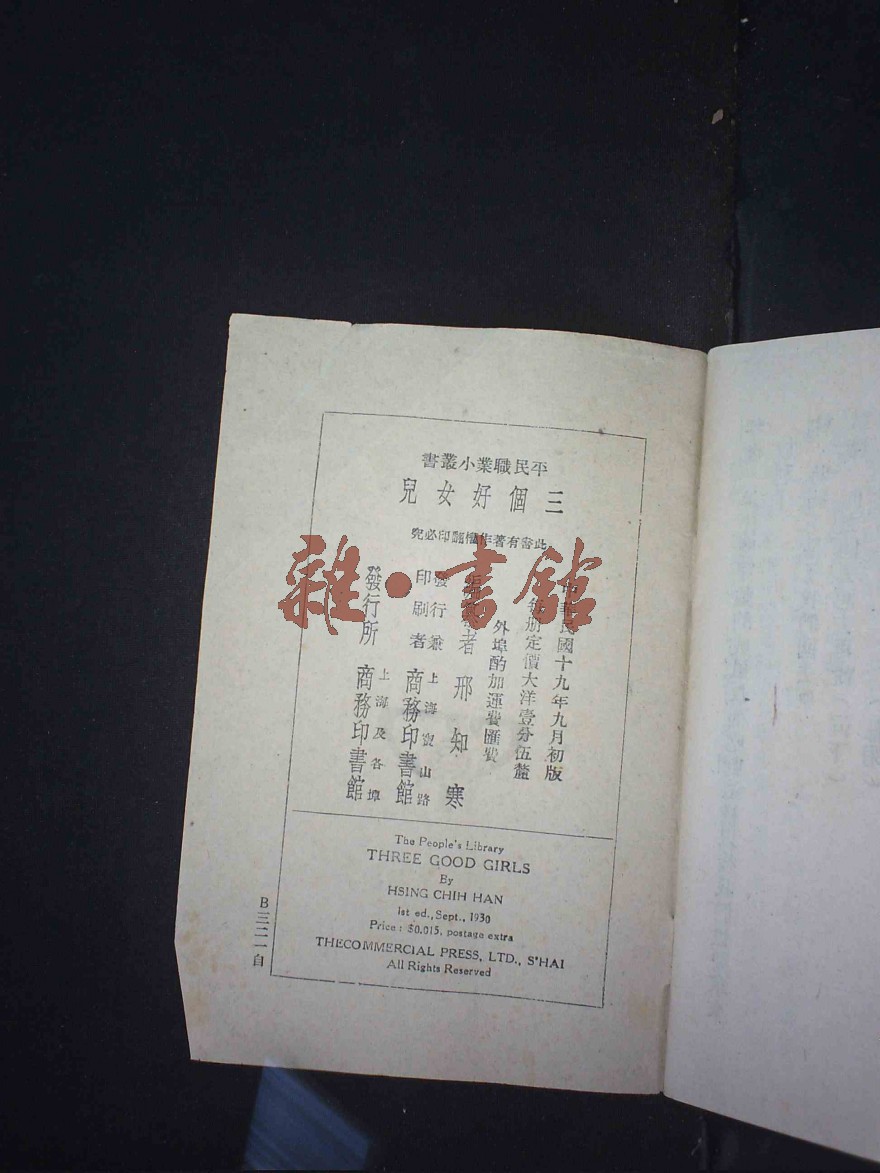 平民職業小叢書
三個好女兒
此書有著作權翻印必究
中華民國十九年九月初版
每册定價大洋壹分伍釐
外埠酌加運費匯費
者 邢知寒
發行兼
印刷者
上海寶山路
商務印書館
發行所
上海及各埠
商務印書館
The People's Library
THREE GOOD GIRLS
By
HSING CHIH HAN
1st ed., Sept., 1930
Price : $0.015, postage extra
THE COMMERCIAL PRESS, LTD., S'HAI
All Rights Reserved
B三二一自
雜·書館